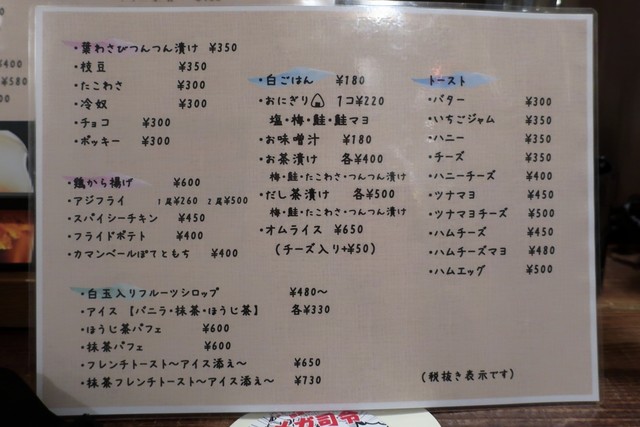 ・葉わさびつんつん漬け ¥350
・枝豆 ¥350
・たこわさ ¥300
・冷奴 ¥300
・チョコ ¥300
・ポッキー ¥300
・鶏から揚げ ¥600
・アジフライ 1尾¥260 2尾¥500
・スパイシーチキン ¥450
・フライドポテト ¥400
・カマンベールぽてともち ¥400
・白ごはん ¥180
・おにぎり 1コ¥220
塩・梅・鮭・鮭マヨ
・お味噌汁 ¥180
・お茶漬け 各¥400
梅・鮭・たこわさ・つんつん漬け
・だし茶漬け 各¥500
梅・鮭・たこわさ・つんつん漬け
・オムライス ¥650
(チーズ入り+¥50)
トースト
・バター ¥300
・いちごジャム ¥350
・ハニー ¥350
・チーズ ¥350
・ハニーチーズ ¥400
・ツナマヨ ¥450
・ツナマヨチーズ ¥500
・ハムチーズ ¥450
・ハムチーズマヨ ¥480
・ハムエッグ ¥500
・白玉入りフルーツシロップ ¥480〜
・アイス 【バニラ・抹茶・ほうじ茶】 各¥330
・ほうじ茶パフェ ¥600
・抹茶パフェ ¥600
・フレンチトースト〜アイス添え〜 ¥650
・抹茶フレンチトースト〜アイス添え〜 ¥730
(税抜き表示です)
¥400
¥580
メガ司令